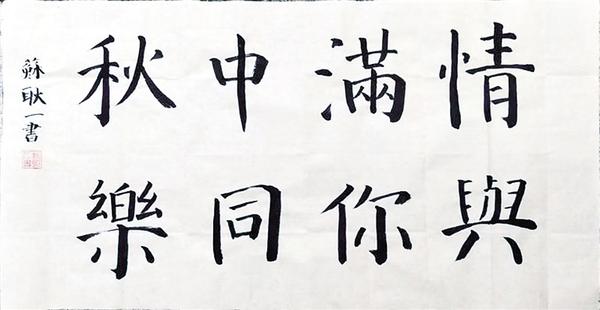 情滿中秋
與你同樂
蘇耿一書